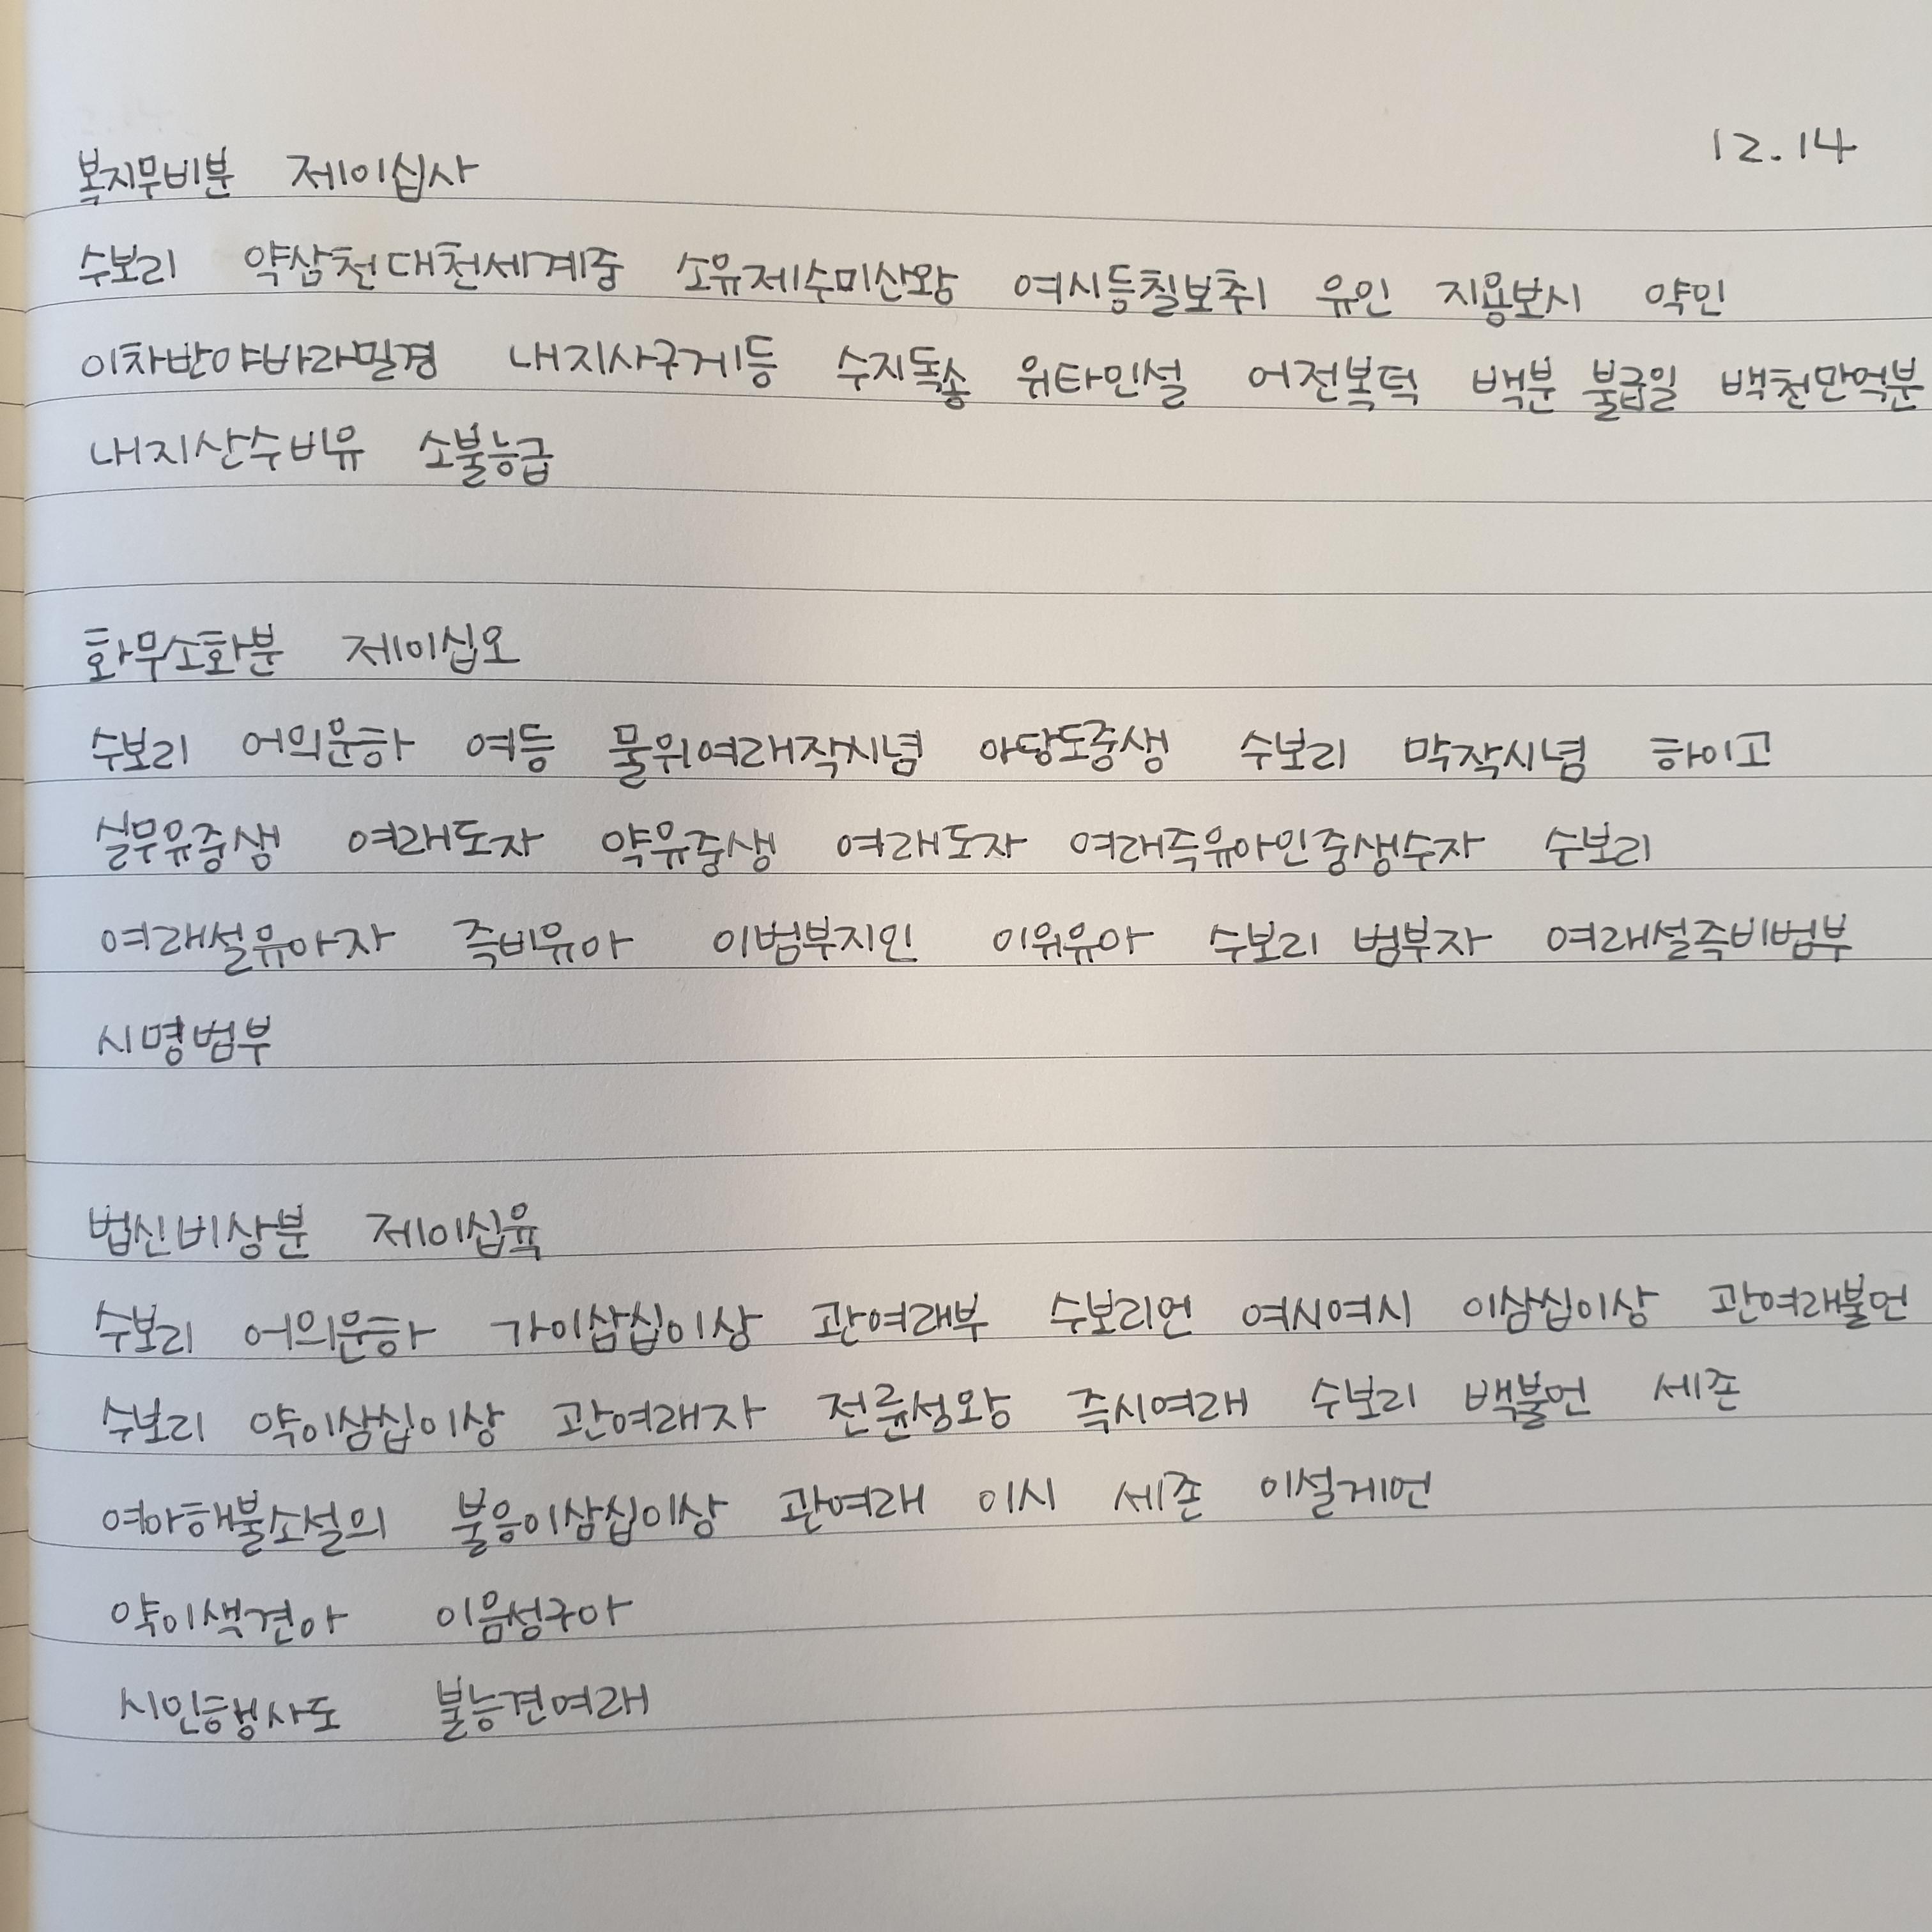 12.14
복지무비분 제이십사
수보리 약삼천대천세계중 소유제수미산왕 여시등칠보취 유인 지용보시 약인
이차반야바라밀경 내지사구게등 수지독송 위타인설 어전복덕 백분 불급일 백천만억분
내지산수비유 소불능급
화무소화분 제이십오
수보리 어의운하 여등 물위여래작시념 아당도중생 수보리 막작시념 하이고
실무유중생 여래도자 약유중생 여래도자 여래즉유아인중생수자 수보리
여래설유아자 즉비유아 이범부지인 이위유아 수보리 범부자 여래설즉비범부
시명범부
법신비상분 제이십육
수보리 어의운하 가이삼십이상 관여래부 수보리언 여시여시 이삼십이상 관여래불언
수보리 약이삼십이상 관여래자 전륜성왕 즉시여래 수보리 백불언 세존
여아해불소설의 불응이삼십이상 관여래 이시 세존 이설게언
약이색견아 이음성구아
시인행사도 불능견여래